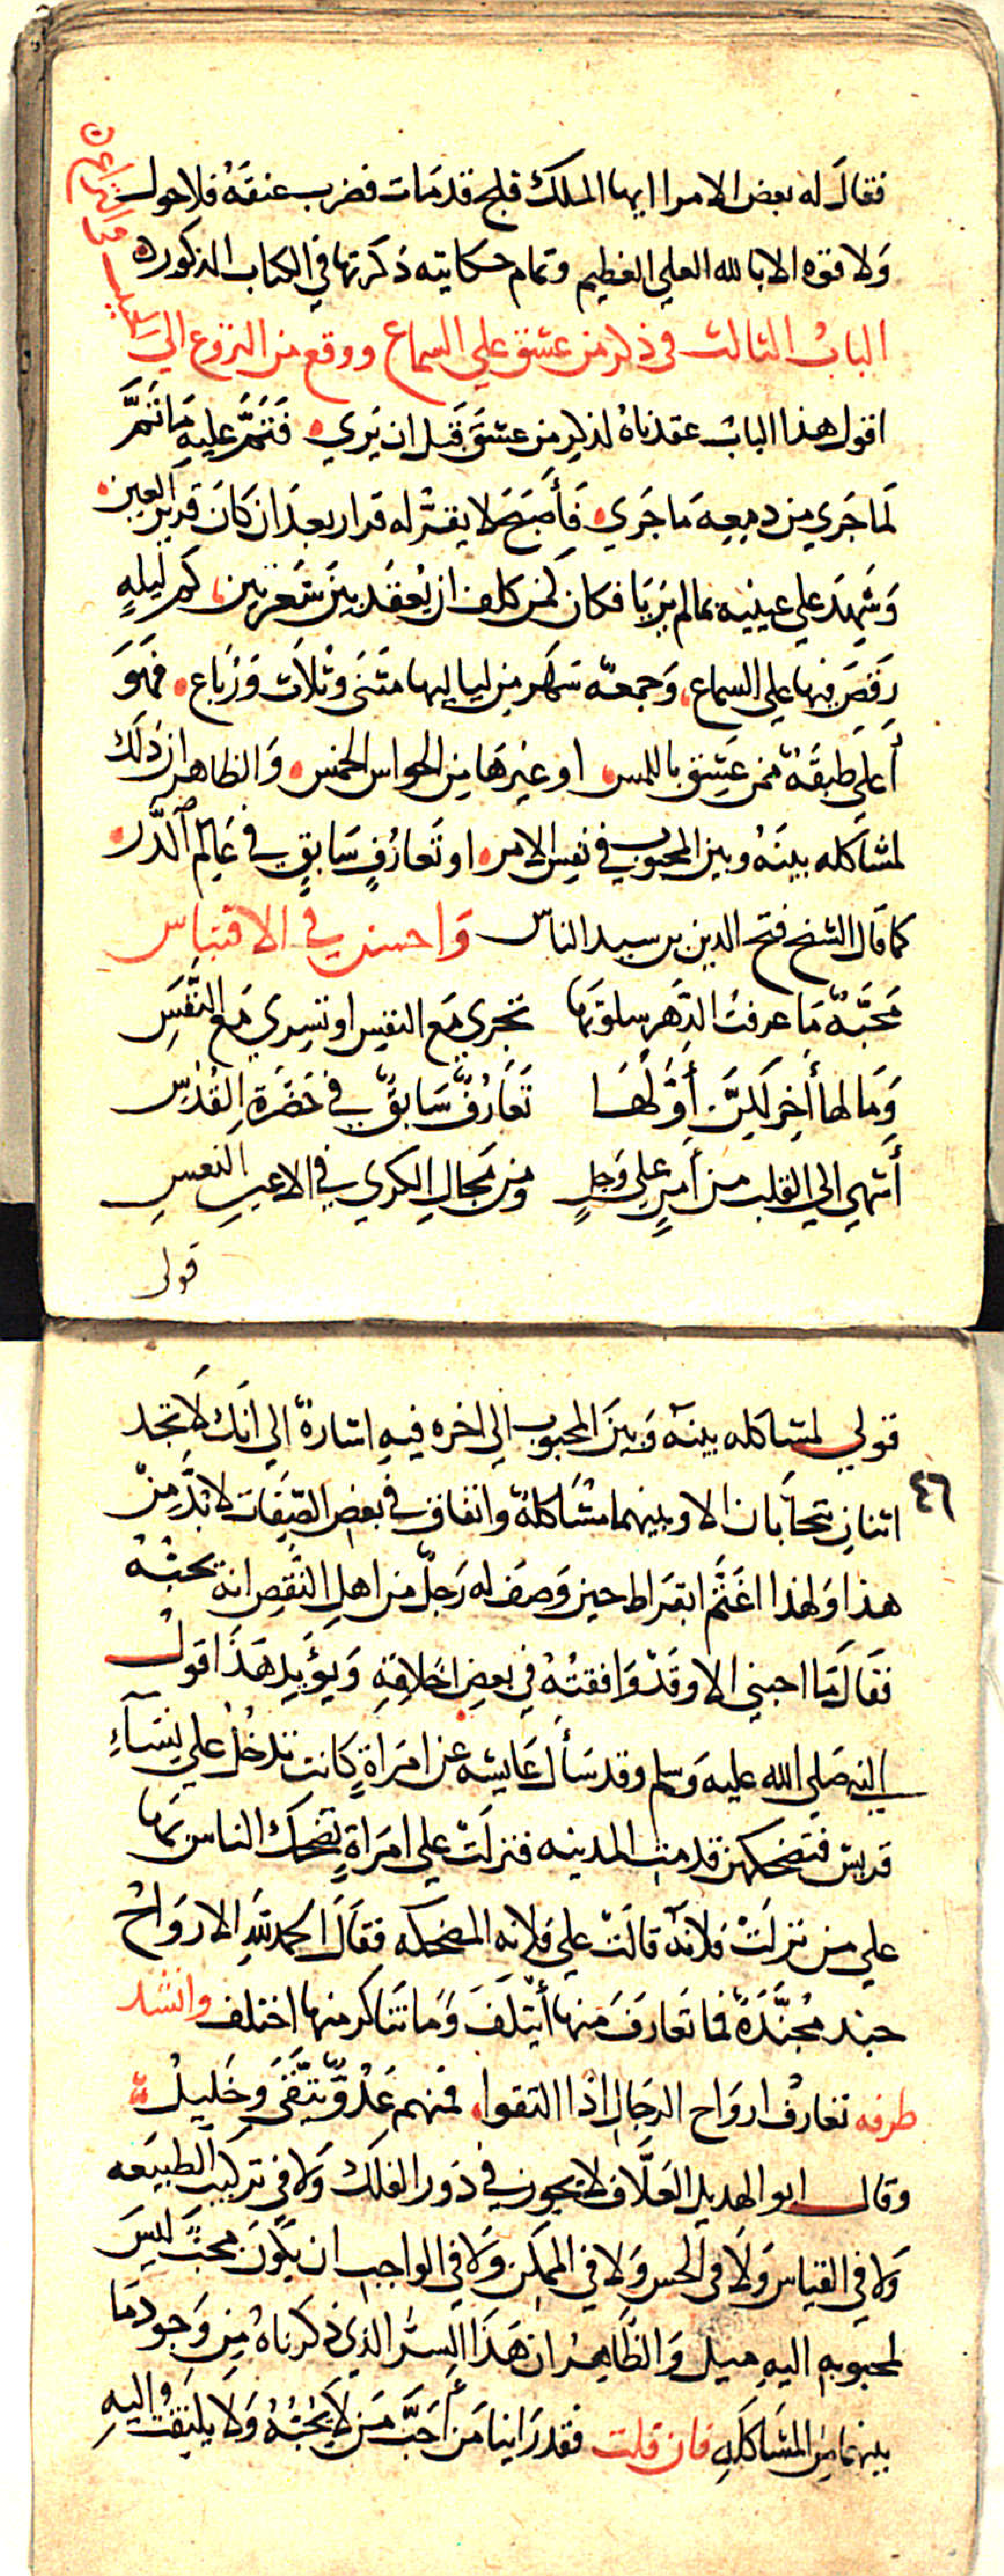 فقال له بعض الامرا ايها الملك قلج قد مات فضرب عنقه فلا حول
ولا قوه الا بالله العلي العظيم وتمام حكايته ذكرتها في الكتاب المذكور
الباب الثالث في ذكر من عشق علي السماع ووقع من النزوع الي
اقول هذا الباب عقدناه لذكر من عشق قبل ان يري فتم عليه ما تم
لما جري من دمعه ما جري فأصبح لا يقر له قرار بعد ان كان قرير العين
وشهد علي عينيه بمالم تريا فكان كمن كلف ان يعقد بين شعرتين كم ليلهٍ
رقص فيها علي السماع وجمعه سهر من لياليها مثنى وثلاث ورباع فهو
أعلي طبقة ممن عشق باللمس او غيرها من الحواس الخمس والظاهر ان ذلك
لمشاكله بينه وبين المحبوب في نفس الامر او تعارفٍ سابقٍ في عالم الذر
كما قال الشيخ فتح الدين بن سيد الناس واحسن في الاقتباس
محبّةٌ ما عرفت الدّهر سلوتها تجري مع النفس او تسري مع النَّفَسِ
وما لها أخر لكنّ أوّلها تعارفٌ سابقٌ في حضرة القدسِ
أشهي الي القلب من أمرٍ علي وجلٍ ومن مجال الكري في الاعين النعسِ
قولي
قولي لمشاكله بينه وبين المحبوب الي اخره فيه اشارة الي انك لا تجد
٤٦
اثنان يتحابان الا وبينهما مشاكلة واتفاق في بعض الصفات لا بدّ من
هذا ولهذا اغتم ابقراط حين وصف له رجلٌ من اهل النقص انه يحبّه
فقال ما احبني الا وقد وافقته في بعض اخلاقه ويؤيد هذا قول
النبي صلي الله عليه وسلم وقد سأل عايشه عن امراةٍ كانت تدخل علي نسآءِ
قريش فتضحكهن قدمت المدينه فنزلت علي امراةٍ تضحك الناس بها
علي من نزلت فلانة قالت علي فلانه المضحكه فقال الحمد لله الارواح
جند مجنّدة فما تعارف منها أيتلف وما تناكر منها اختلف وانشد
طرفه تعارف ارواح الرجال اذا التقوا فمنهم عدوٌّ يتّقى وخليل
وقال ابو الهديل العلّاف لا يجوز في دور الفلك ولا في تركيب الطبيعه
ولا في القياس ولا في الحس ولا في الممكن ولا في الواجب ان يكون محبّ ليس
لمحبوبه اليه ميل والظاهر ان هذا السر الذي ذكرناه من وجود ما
بينهما من المشاكله فان قلت فقد راينا من أحبّ من لا يحبّه ولا يلتفت اليه